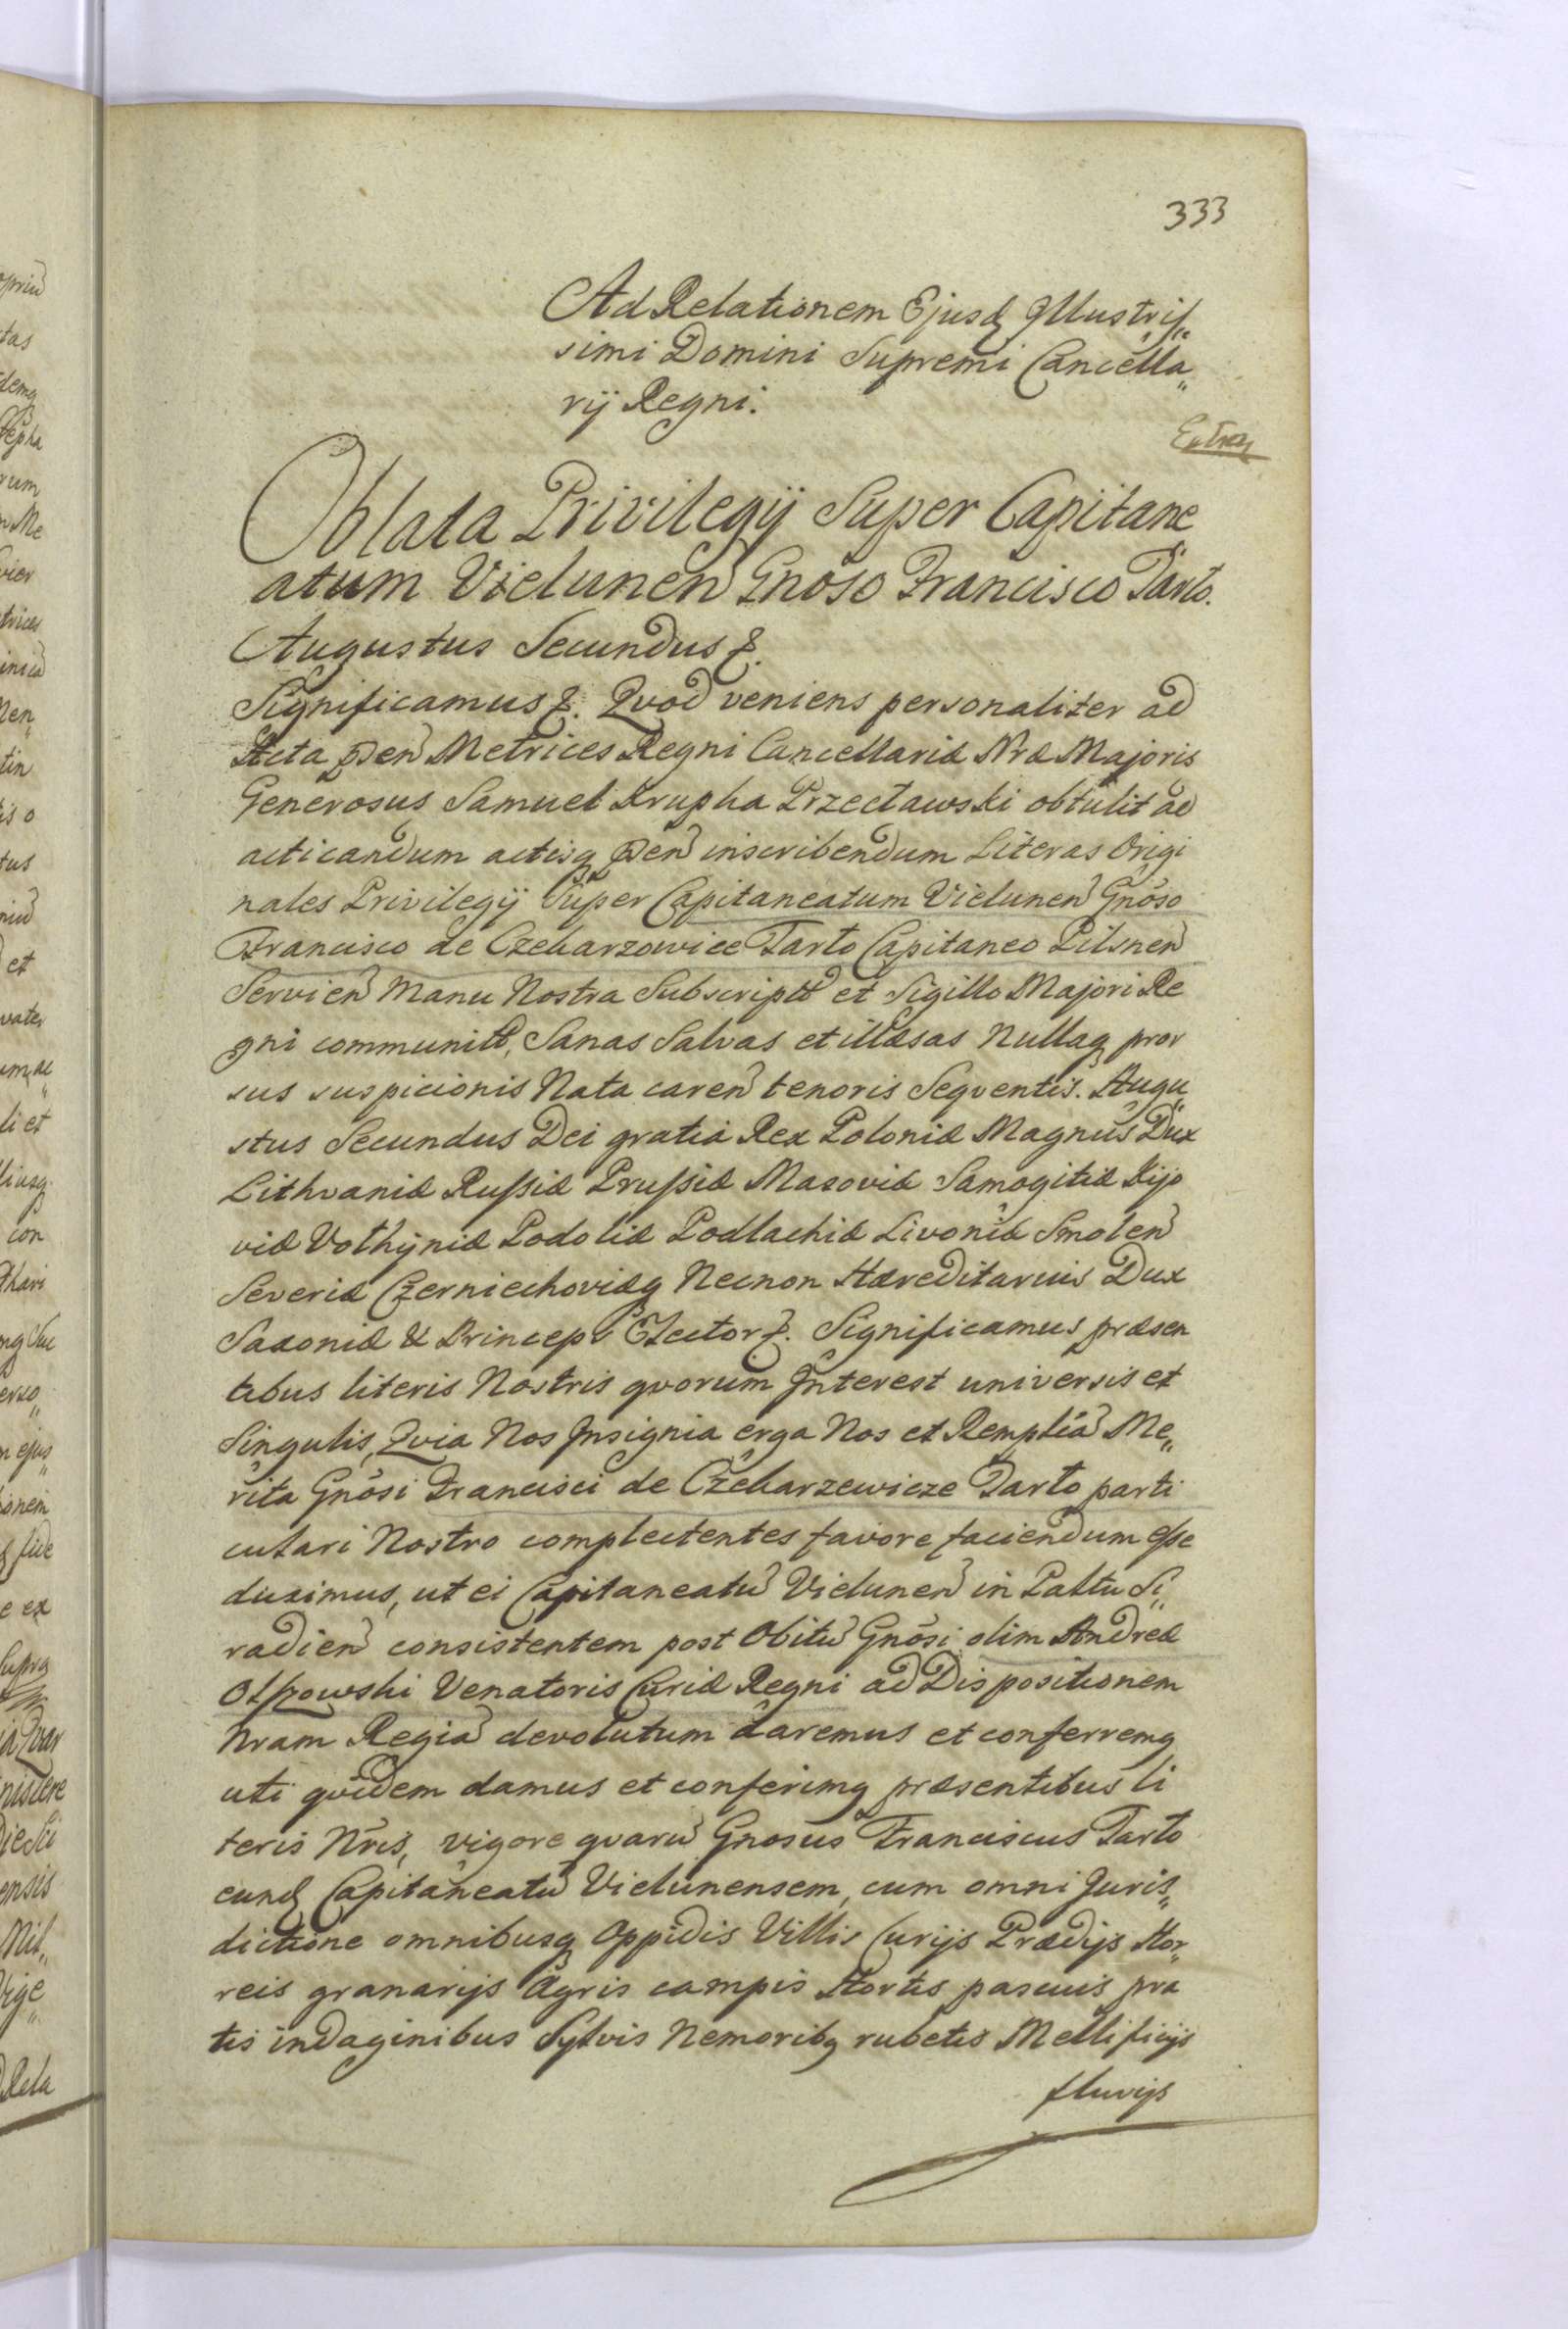 333
Ad Relationem Ejusdq Illustris„
simi Domini Supremi Cancella„
rij Regni.
Oblata Privilegij Super Capitane
atum Vielunen Gnoso Francisco Tarło.
Augustus Secundus &.
Significamus &. Qvod veniens personaliter ad
Acta pden Metrices Regni Cancellariæ Nræ Majoris
Generosus Samuel Krupka Przecławski obtulit ad
acticandum actisq pden inscribendum Literas Origi
nales Privilegij Super Capitaneatum Vielunen Gnoso
Francisco de Czekarzowice Tarło Capitaneo Pilsnen
Servien Manu Nostra Subscriptas et Sigillo Majori Re
gni communitas, Sanas Salvas et illæsas Nullaq pror
sus suspicionis Nata caren tenoris Seqventis. Augu„
stus Secundus Dei gratia Rex Poloniæ Magnus Dux
Lithvaniæ Russiæ Prussiæ Masoviæ Samogitiæ Kijo
viæ Volhyniæ Podoliæ Podlachiæ Livoniæ Smolen
Severiæ Czerniechoviæq Necnon Hæreditarius Dux
Saxoniæ & Princeps Elector &. Significamus præsen
tibus literis Nostris qvorum Interest universis et
Singulis, Qvia Nos Insignia erga Nos et Remplia Me„
rita Gnosi Francisci de Czekarzewicze Tarło parti
culari Nostro complectentes favore faciendum esse
duximus, ut ei Capitaneatu Vielunen in Pałtu Si„
radien consistentem post Obitu Gnosi olim Andreæ
Olszowski Venatoris Curiæ Regni ad Dispositionem
Nram Regia devolutum daremus et conferremq
uti qvidem damus et conferimq præsentibus li
teris Nris, vigore qvaru Gnosus Franciscus Tarło
eundq Capitaneatu Vielunensem, cum omni Juris„
dictione omnibusq Oppidis Villis Curijs Prædijs Hor„
reis granarijs Agris campis Hortis pascuis pra
tis indaginibus Sylvis Nemoribq rubetis Mellificijs
fluvijs